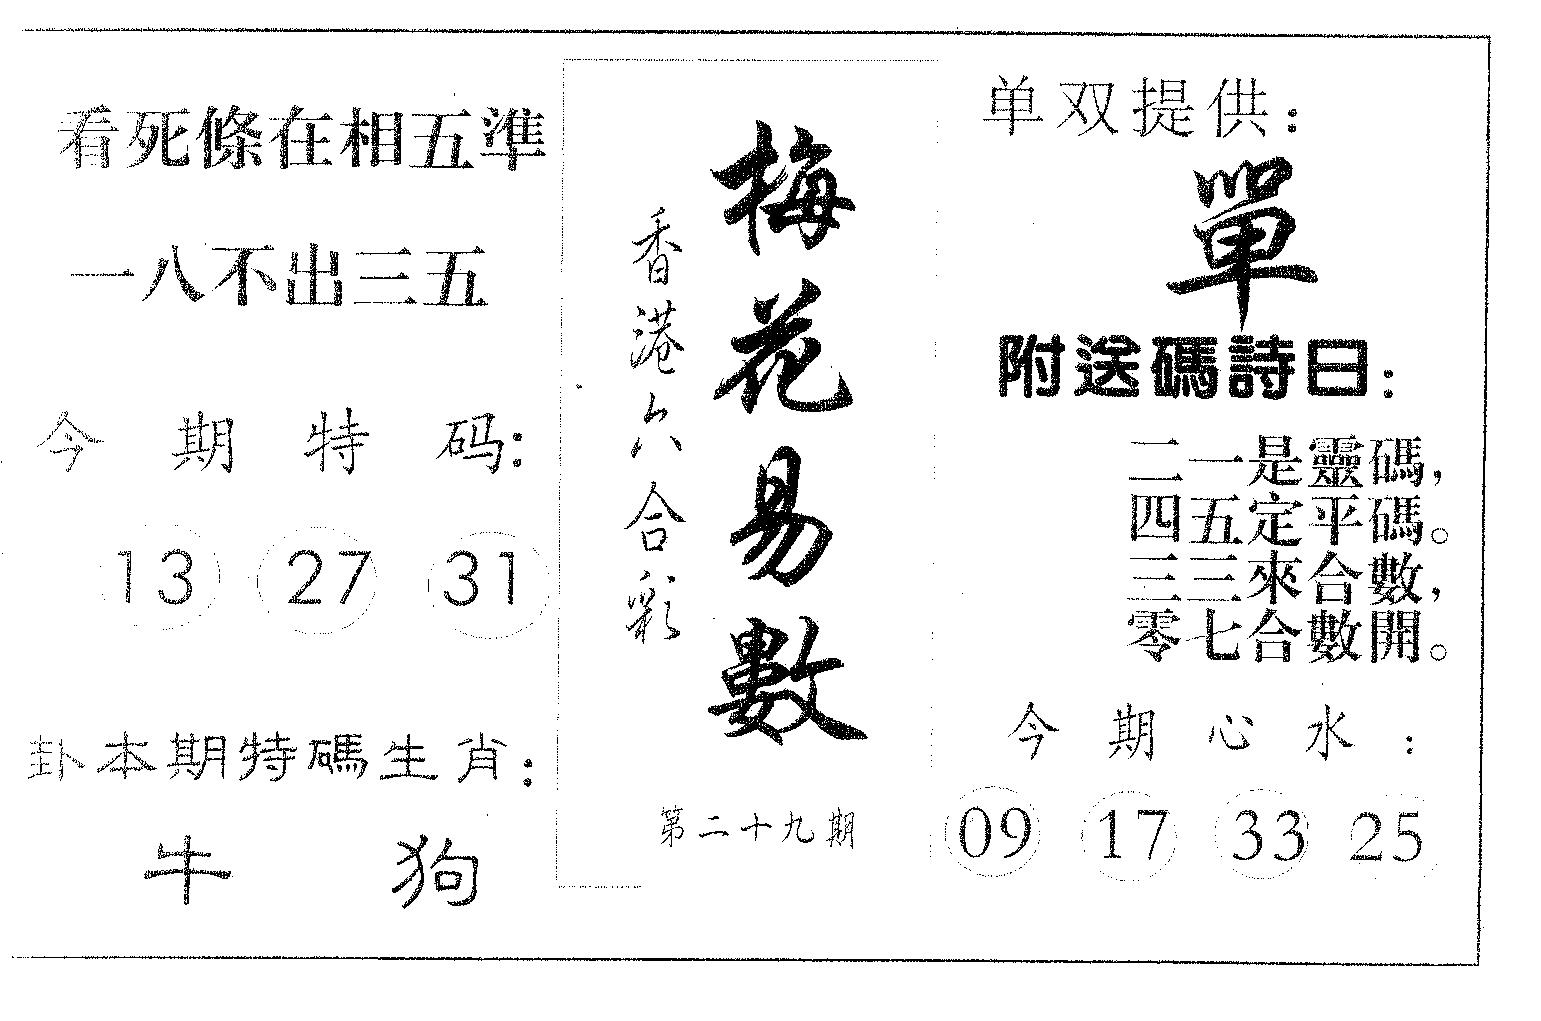 看死條在相五準
一八不出三五
今期特码:
13 27 31
卦本期特碼生肖:
牛 狗
梅花易數
香港六合彩
第二十九期
单双提供:
單
附送碼詩曰:
二一是靈碼,
四五定平碼。
三三來合數,
零七合數開。
今期心水:
09 17 33 25